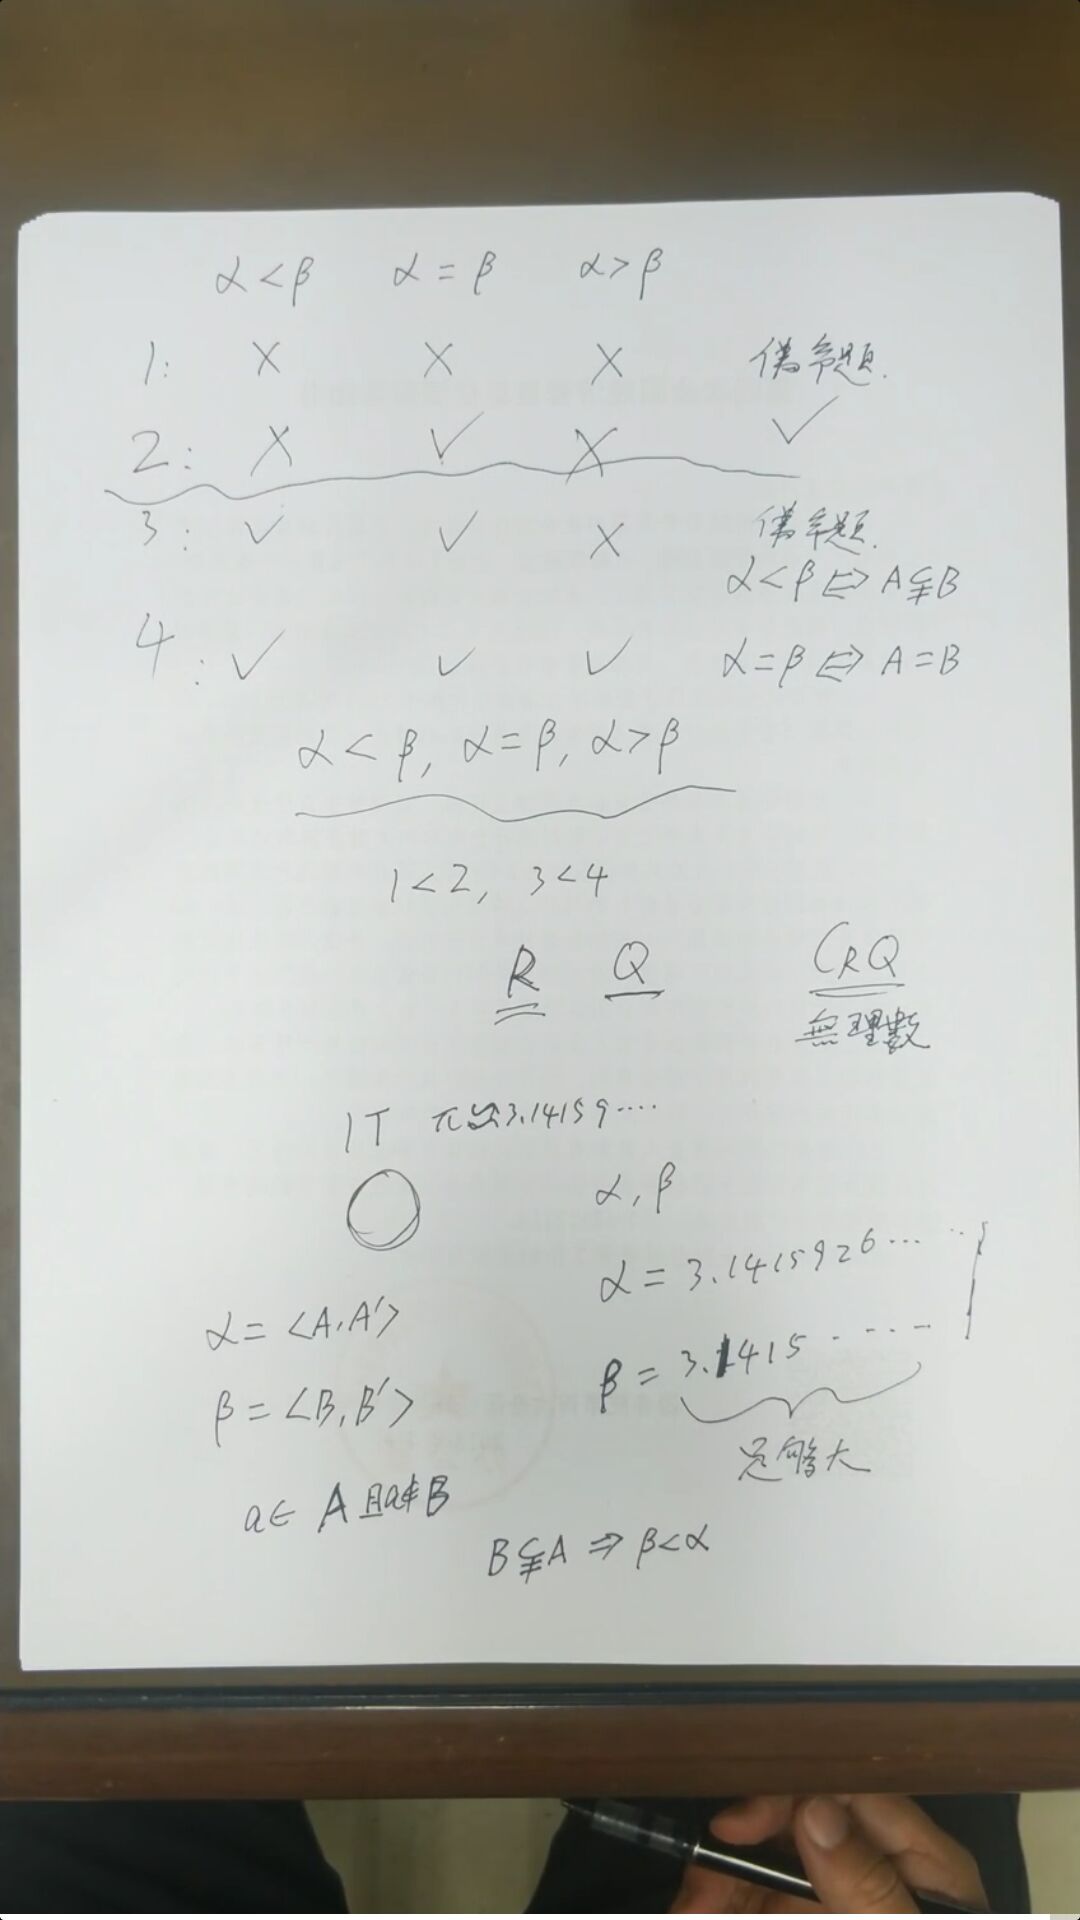 α<β α=β α>β
1: × × × 偽命題.
2: × ✓ × ✓
3: ✓ ✓ × 偽命題.
α<β ⇔ A⫋B
4: ✓ ✓ ✓ α=β ⇔ A=B
α<β, α=β, α>β
1<2, 3<4
R Q CRQ
無理數
π 3.14159····
α, β
α = 3.1415926···
α = <A, A'>
β = 3.1415 ·····
β = <B, B'>
足够大
a∈ A 且a∉B
B⫋A ⇒ β<α